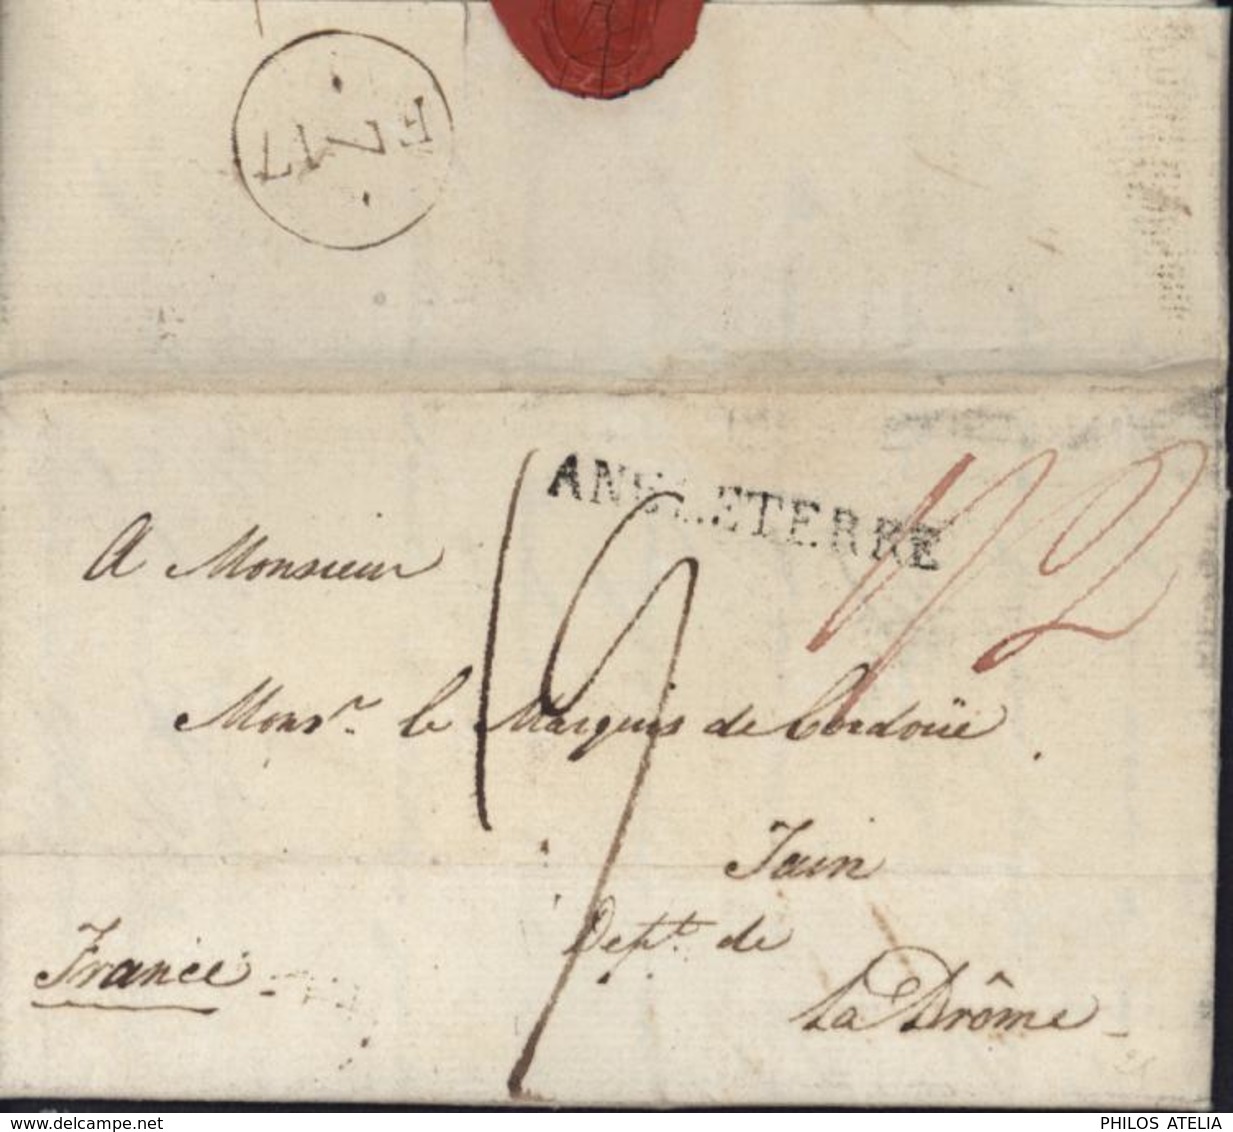 ANGLETERRE
1/2
19
A Monsieur
Monsr. le Marquis de Cordoüe
Tain
Dept. de
La Drôme
France
www.delcampe.net
PHILOS ATELIA